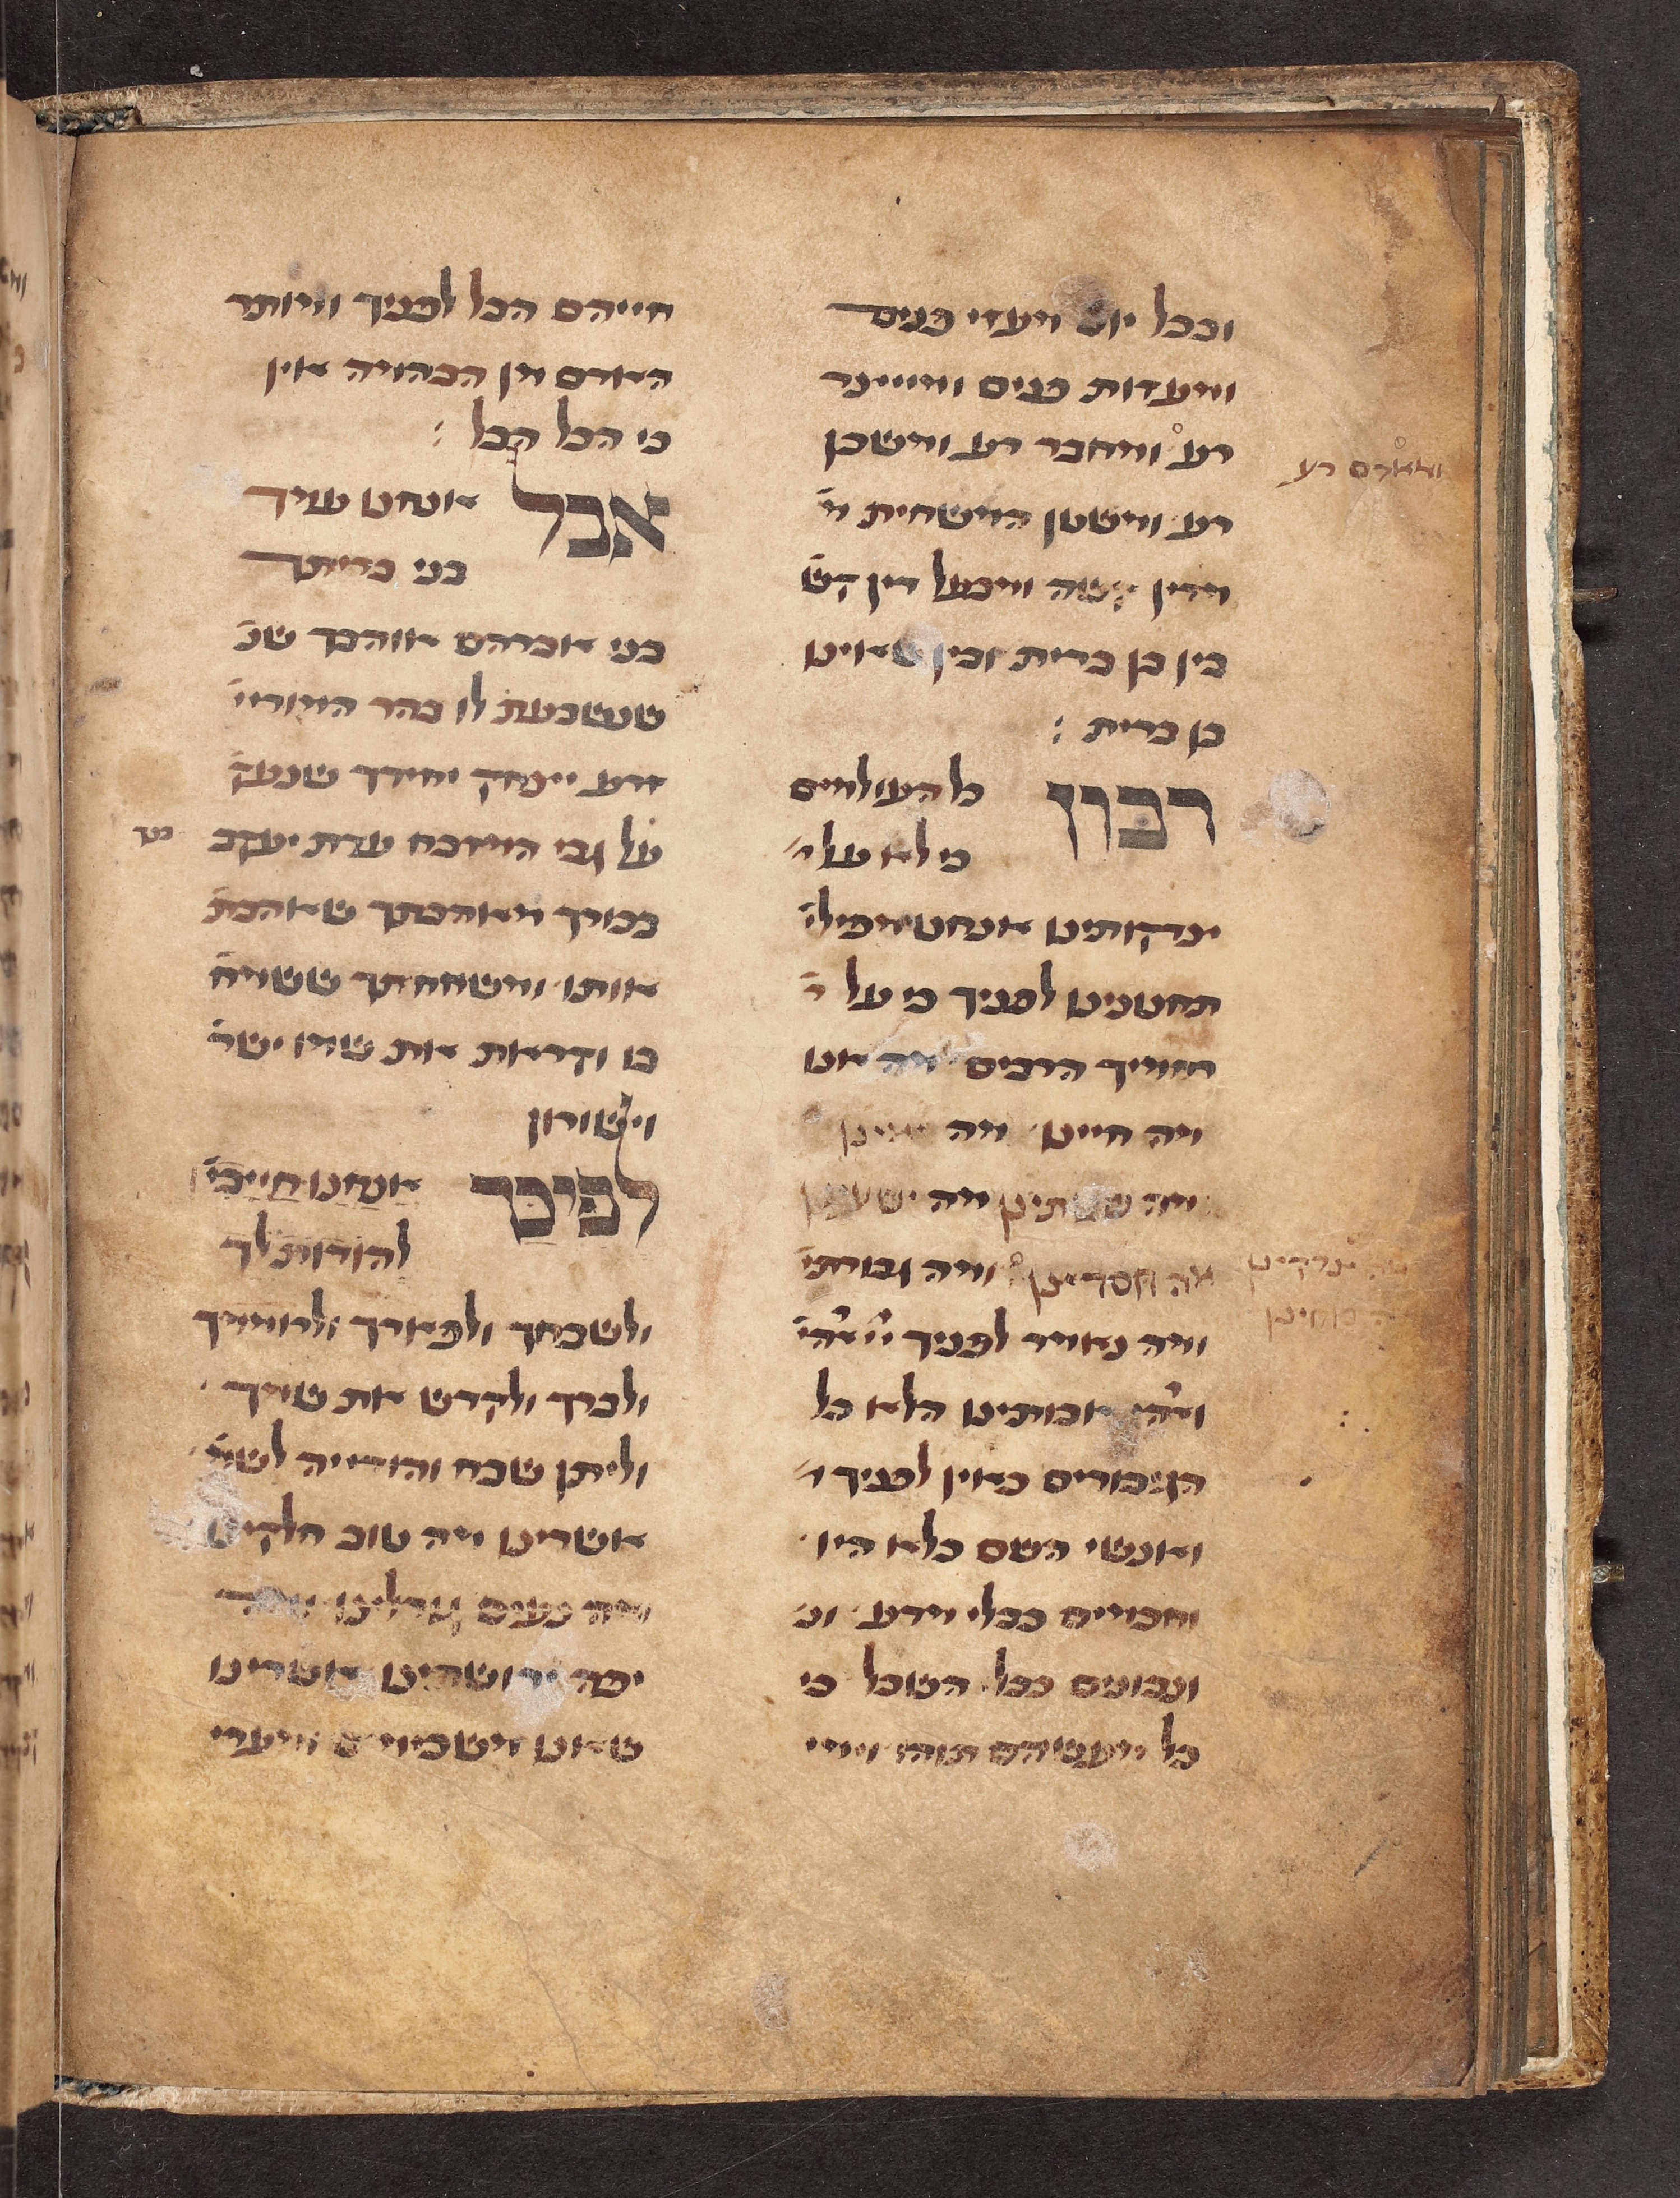 ובכל יום מעזי פנים
ומעזות פנים ומייצר
רע ומחבר רע ומשכן
ומאדם רע
רע ומשטן המשחית מ
מדין קשה ומבעל דין קש
בין בן ברית ובין שאינו
בן ברית :
רבון כל העולמים
כי לא על
צדקותינו אנחנו מפילי
תחנונינו לפניך כי על
רחמיך הרבים מה אנו
מה חיינו מה
מה ישענו
מה חסדינו ומה גבורתי
מה צדקינו
מה כוחינו
ומה נאמר לפניך ייי אהי
ואהי אבותינו הלא כל
הגיבורים כאין לפניך ו
ואנשי השם כלא היו
וחכמים כבלי מדע ונ
ונבונים כבלי השכל כי
כל מעשיהם תוהו וימי
חייהם הבל לפניך ומותר
האדם מן הבהמה אין
כי הכל הבל :
אבל אנחנו עמך
בני בריתך
בני אברהם אוהבך שנ
שנשבעת לו בהר המוריי
זרע יצחק יחידך שנעק
על גבי המזבח עדת יעקב
בכורך מאהבתך שאהבת
אותו ומשמחתך ששמח
בו וקראת את שמו ישר
וישורון
לפיכך אנחנו חייבי
להודות לך
ולשבחך ולפארך ולרוממך
ולברך ולקדש את שמך
וליתן שבח והודייה לשמ
אשרינו מה טוב חלקינו
מה נעים גורלינו ומה
יפה ירושתינו אשרינו
שאנו משכימים ומערי